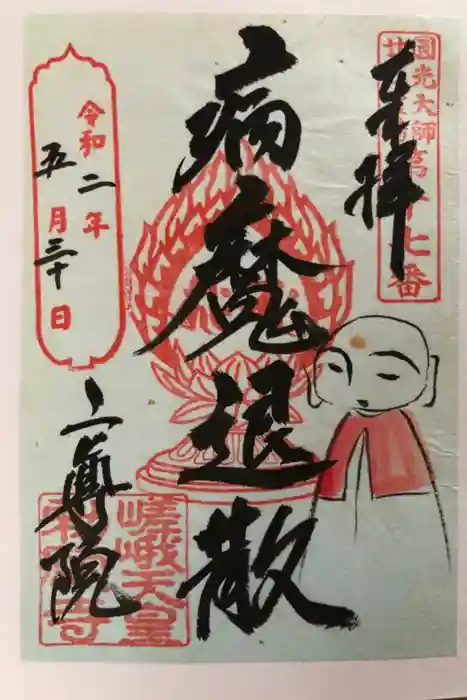 奉拝
圓光大師第十七番
廿
病魔退散
令和二年
五月三十日
二尊院
嵯峨天皇